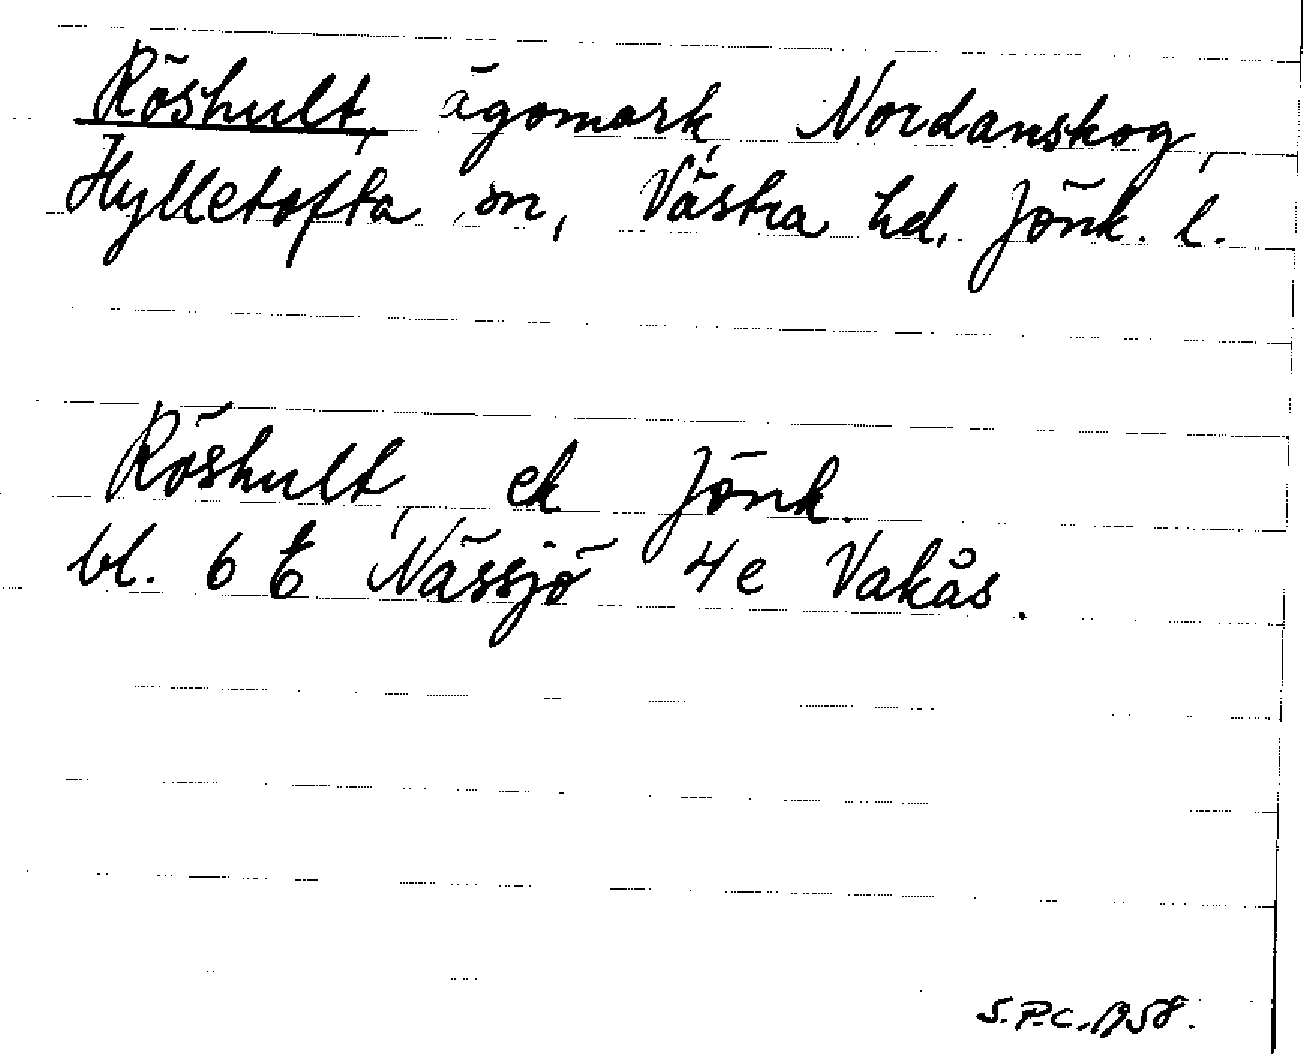 Röshult, ägomark, Nordanskog,
Hylletofta sn, Västra hd. Jönk. l.
Röshult, ek Jönk.
bl. 6 E Nässjö 4e Vakås.
S.P.C. 1958.